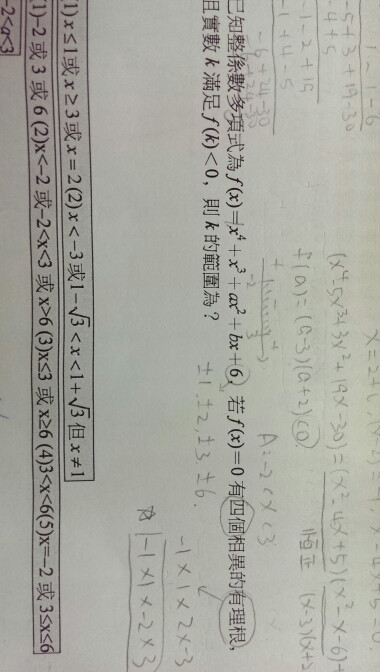 x=2+i
(x⁴-5x³+3x²+19x-30)=(x²-4x+5)(x²-x-6)
恒正 (x-3)(x+2)
f(a)=(a-3)(a+2)<0
A=-2<x<3
-5+3+19-30
-1-2+15
-1+4-5
-6+24-30
已知整係數多項式為f(x)=x⁴+x³+ax²+bx+6,若f(x)=0有四個相異的有理根,
且實數k滿足f(k)<0,則k的範圍為?
±1,±2,±3,±6.
-1×1×2×-3
-1×1×-2×3
(1)x≤1或x≥3或x=2(2)x<-3或1-√3<x<1+√3但x≠1
(1)-2或3或6(2)x<-2或-2<x<3或x>6(3)x≤3或x≥6(4)3<x<6(5)x=-2或3≤x≤6
-2<a<3